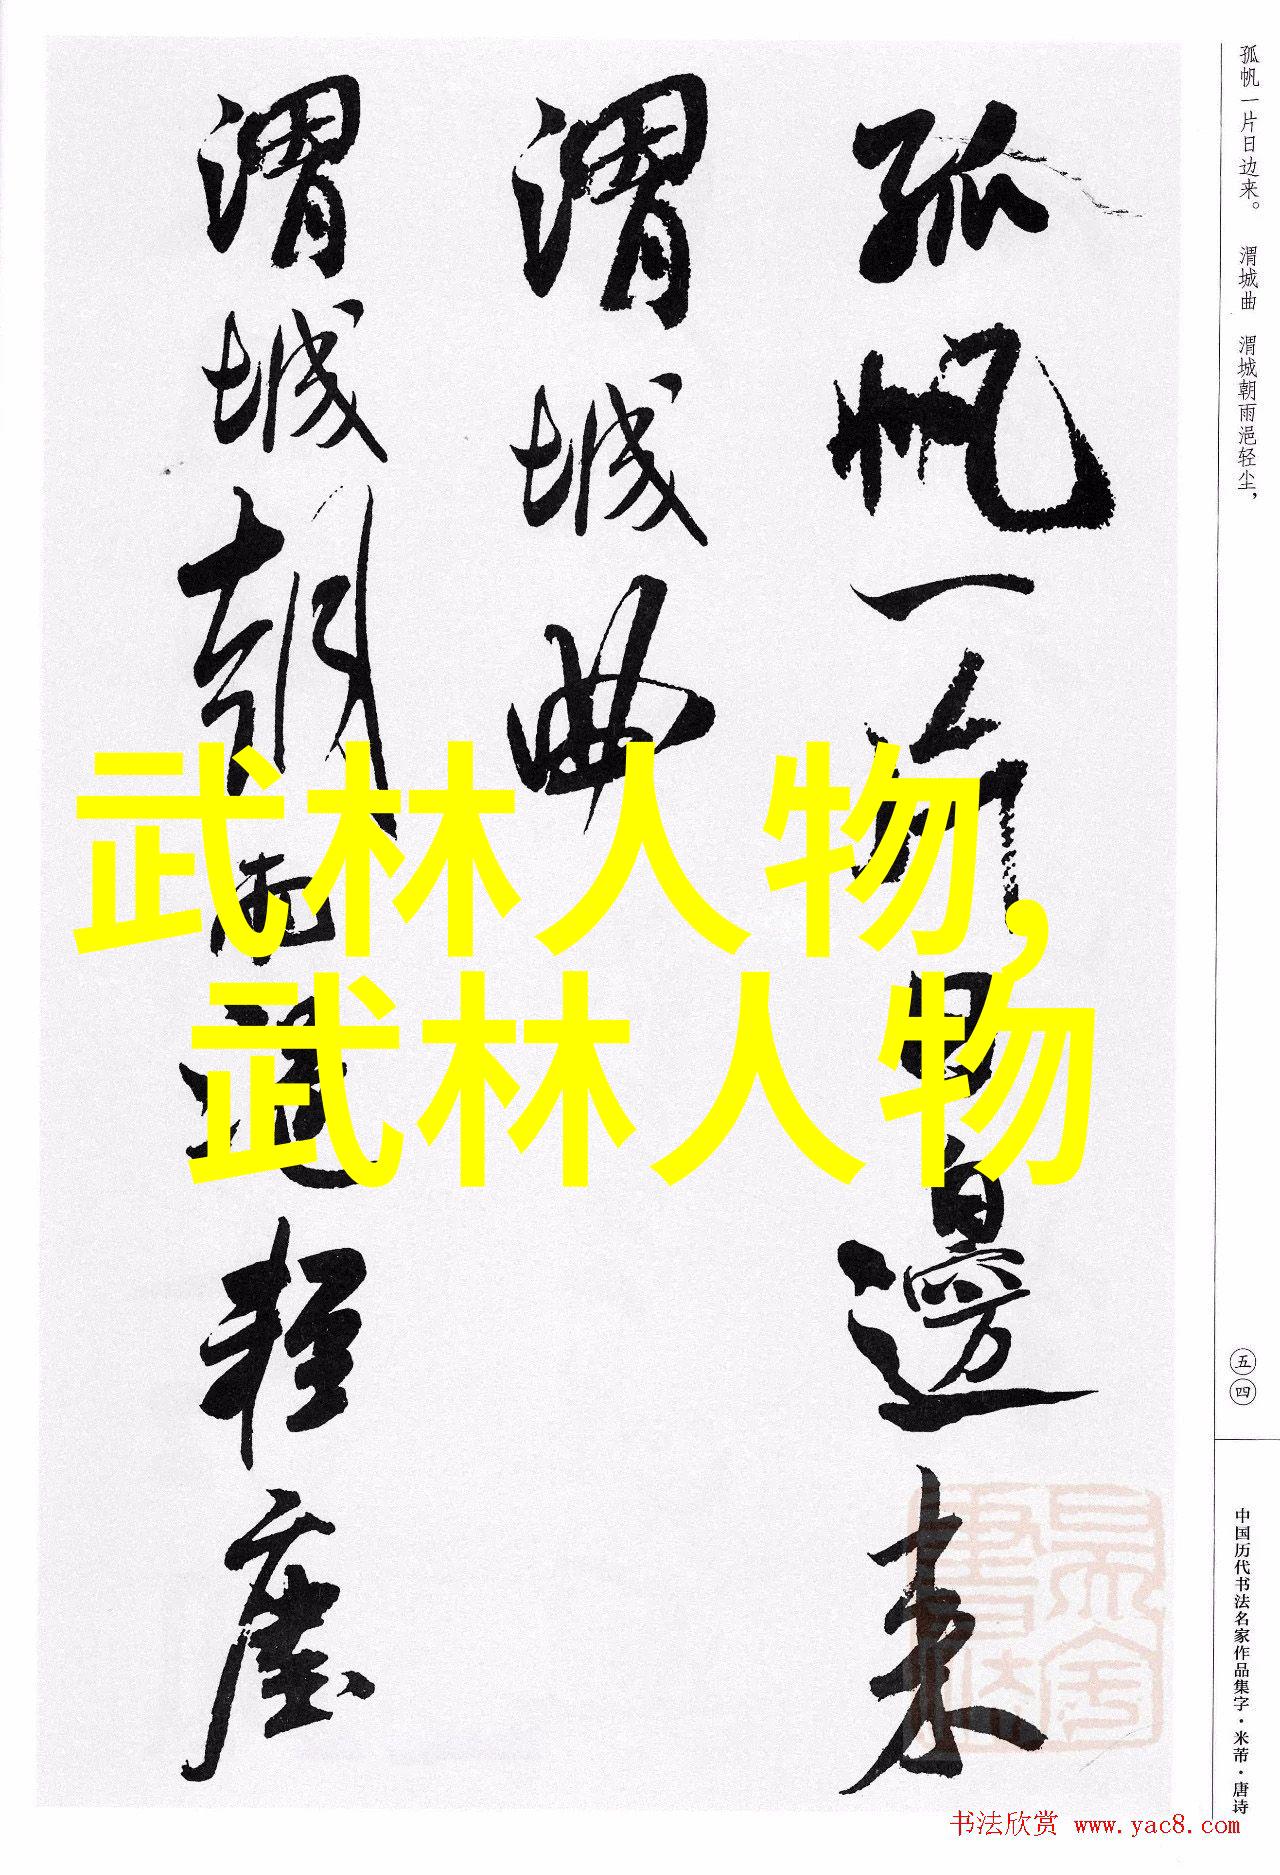 孤帆一片日边来。 渭城曲 渭城朝雨浥轻尘，
五四
中国历代书法名家作品集字·米芾·唐诗
孤帆一片日邊来
渭城曲
渭城朝雨浥轻塵
武林人物，
武林人物
书法欣赏 www.yac8.com